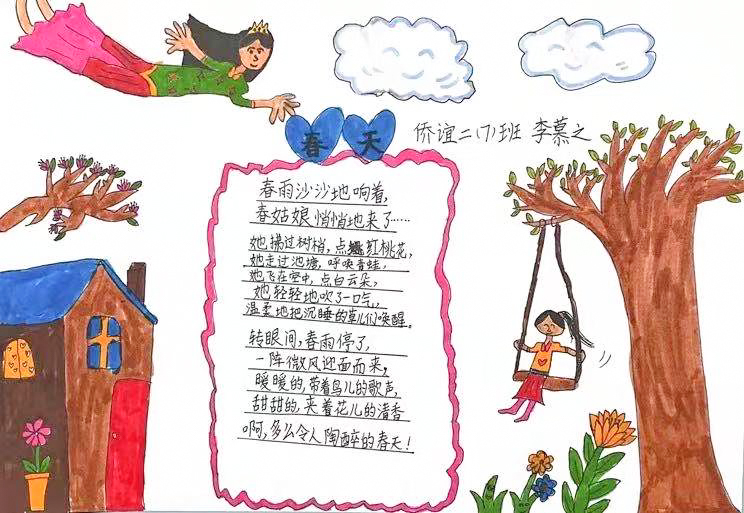 春天
侨谊二(7)班 李慕之
春雨沙沙地响着,
春姑娘悄悄地来了……
她拂过树梢,点红桃花,
她走过池塘,呼唤青蛙,
她飞在空中,点白云朵,
她轻轻地吹了一口气,
温柔地把沉睡的草儿们唤醒。
转眼间,春雨停了,
一阵微风迎面而来,
暖暖的,带着鸟儿的歌声,
甜甜的,夹着花儿的清香
啊,多么令人陶醉的春天!